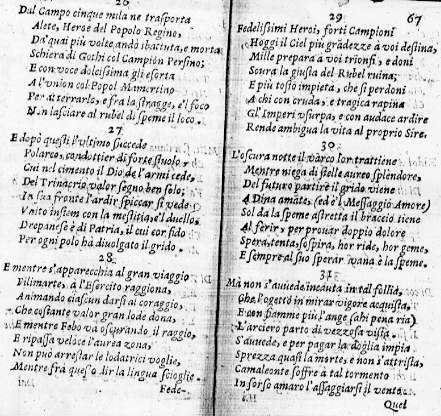 26
Dal Campo cinque mila ne trasporta
Alete, Heroe del Popolo Regino,
Da' quai più volte andò ibattuta, e morta
Schiera di Gothi col Campion Persino;
E con voce dolcissima gli esorta
A l'union col Popol Mamertino
Per atterrarlo, e fra la stragge, e'l foco
Non lasciare al rubel di speme il loco.
27
E dopò questi l'ultimo succede
Polarco, condottier di forte stuolo,
Cui nel cimento il Dio de l'armi cede,
Del Trinacrio valor segno ben solo;
In sua fronte l'ardir spiccar si vede
Vnito insiem con la mestitia, e'l duello,
Drepanse è di Patria, il cui cor fido
Per ogni polo hà diuolgato il grido.
28
E mentre s'apparecchia al gran viaggio
Filimarte, à l'Esercito raggiona,
Animando ciascun darsi al coraggio,
Che costante valor gran lode dona,
E mentre Febo và oscurando il raggio,
E ripassa veloce l'aurea zona,
Non può arrestar le lodatrici voglie,
Mentre frà quest'o dir la lingua scioglie.
Fede-
29
67
Fedelissimi Heroi, forti Campioni
Hoggi il Ciel più grãdezze à voi destina,
Mille prepara à voi trionfi, e doni
Soura la giusta del Rubel ruina;
E più tosto impietà, che si perdoni
A chi con cruda, e tragica rapina
Gl'Imperi vsurpa, e con audace ardire
Rende ambigua la vita al proprio Sire.
30
L'oscura notte il varco lor trattiene
Mentre niega di stelle aureo splendore,
Del futuro partire il grido viene
A Dina amãte, (ed è l Messaggio Amore)
Sol da la speme astretta il braccio tiene
Al ferir, per prouar doppio dolore
Spera, tenta, sospira, hor ride, hor geme,
E sempre al suo sperar vana è la speme.
31
Mà non s'auuede incauta in tal follia,
Che l'oggetto in mirar vigore acquista,
E con fiamme più l'ange (ahi pena ria)
L'arciero parto di vezzosa vista
S'auuede, e per pagar la doglia impia
Sprezza quasi la morte, e non s'attrista,
Camaleonte soffre à tal tormento
In sorso amaro l'assaggiarsi il vento.
Quel